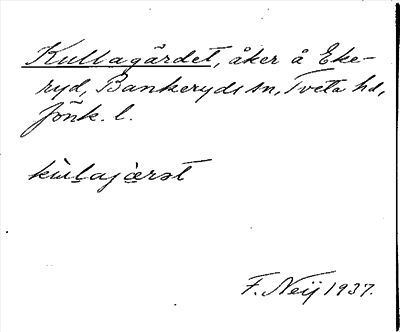 Kullagärdet, åker å Eke-
ryd, Bankeryds sn, Tveta hd,
Jönk. l.
kùḷajæ̀rət
F. Neij 1937.